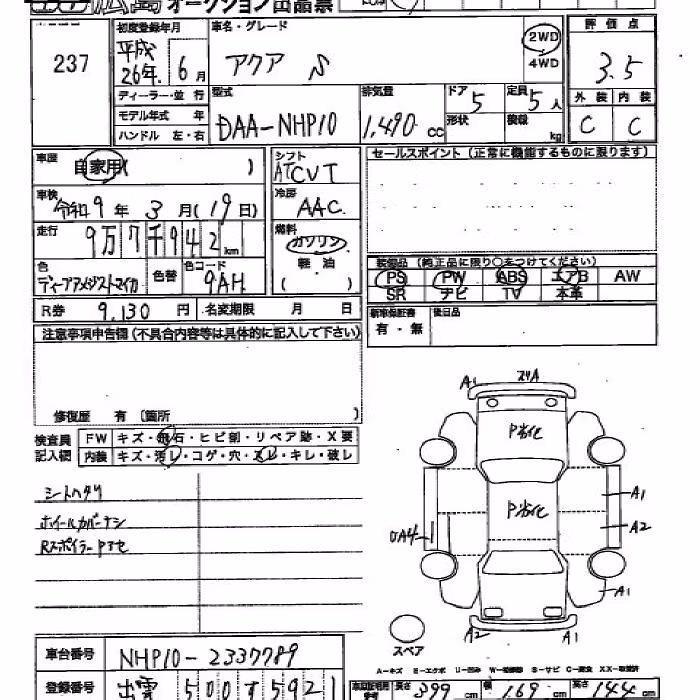 広島 オークション出品票
237
初度登録年月
平成 26年 6月
車名・グレード
アクア S
2WD
4WD
評価点
3.5
外装 内装
C C
ディーラー・並行
モデル年式 年
ハンドル 左・右
型式
DAA-NHP10
排気量
1,490 cc
ドア 5
定員 5人
形状
積載 kg
車歴 自家用( )
車検 令和9年 3月(19日)
走行 9万7千942km
色 ディープアメジストマイカ
色替
色コード 9AH
シフト
AT CVT
冷房
AAC
燃料
ガソリン
軽・油
( )
セールスポイント (正常に機能するものに限ります)
装備品 (純正品に限り○をつけてください)
PS PW ABS エアB AW
SR ナビ TV 本革
R券 9,130円 名変期限 月 日
新車保証書 有・無
後日品
注意事項申告欄(不具合内容等は具体的に記入して下さい)
修復歴 有 (箇所 )
検査員記入欄
FW キズ・飛石・ヒビ割・リペア跡・X要
内装 キズ・汚レ・コゲ・穴・スレ・キレ・破レ
シートヘタリ
ホイールカバーナシ
RスポイラーPアセ
A1 スリA
P劣化
P劣化
A1
A2
UA4
A1
A2 A1
スペア
A-キズ E-エクボ U-凹み W-補修跡 S-サビ C-腐食 XX-取替済
車台番号 NHP10-2337789
登録番号 出雲 500す5921
長さ 399cm 幅 169cm 高さ 144cm